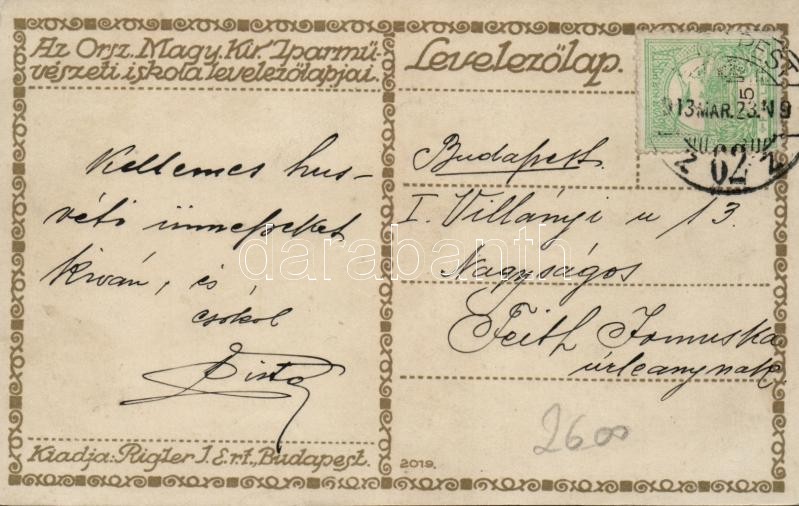 Az Orsz. Magy. Kir. Iparmű-
vészeti iskola levelezőlapjai.
Kellemes hus-
véti ünnepeket
kiván, és
csókol
Pista
Kiadja: Rigler J. E. r.t., Budapest.
Levelezőlap.
913 MAR. 23. N 9
62
Budapest
I. Villányi u 13.
Nagyságos
Feith Tomuska
úrleánynak
2600
2019.
darabanth